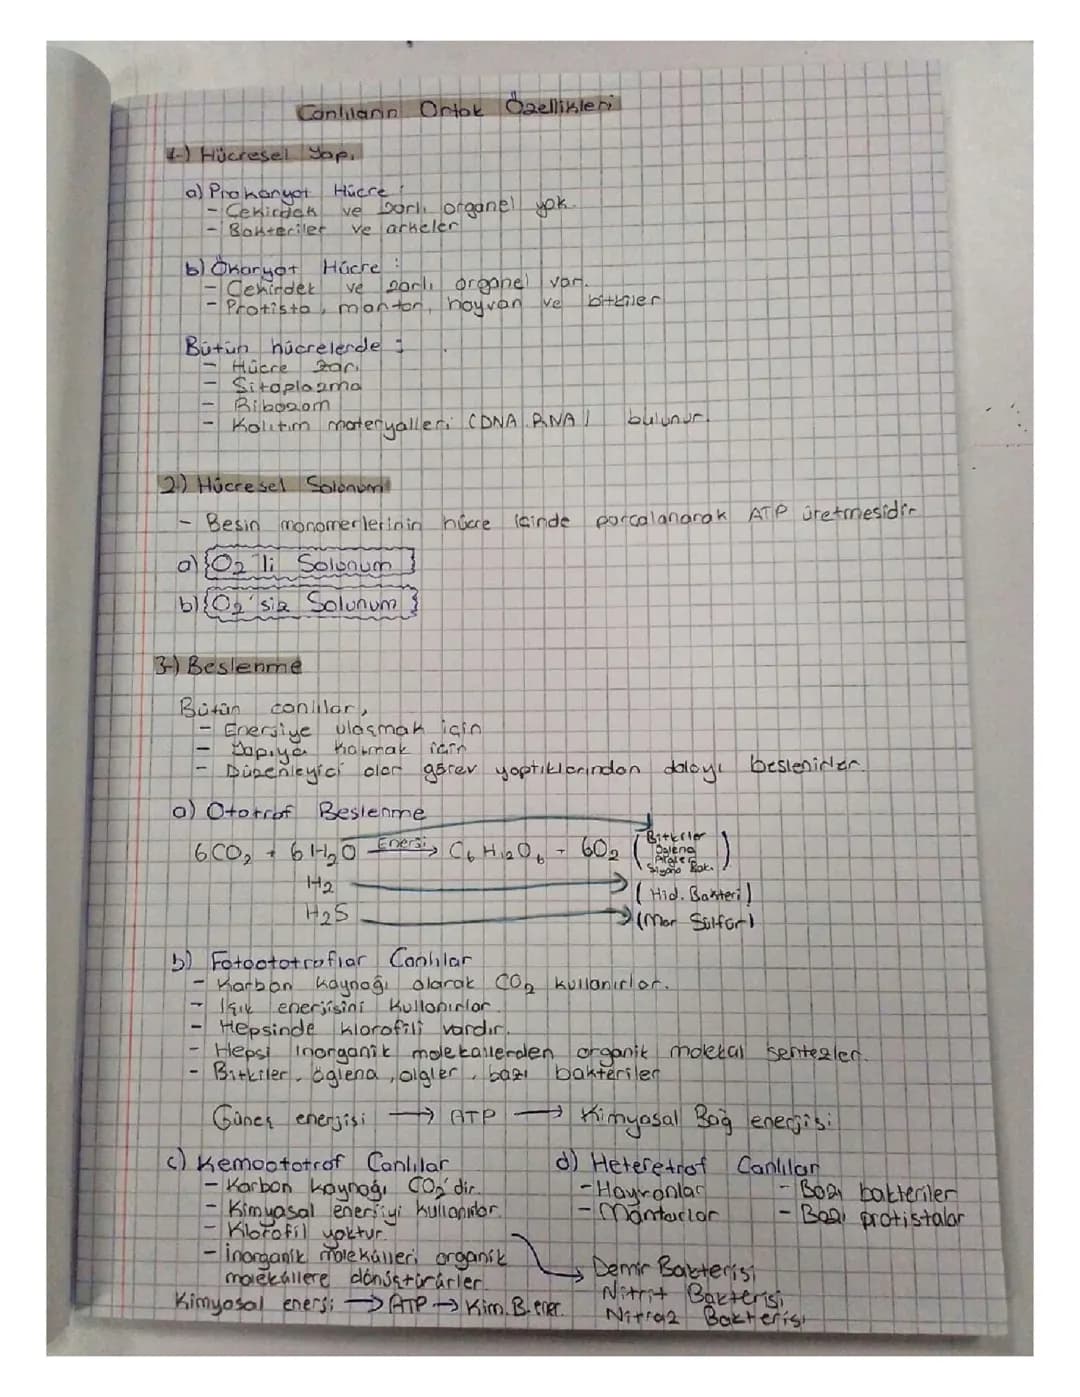 Canlıların Ortak Özellikleri
1-) Hücresel Yapı
a) Prokaryot Hücre :
- Çekirdek ve zarlı organel yok.
- Bakteriler ve arkeler
b) Ökaryot Hücre :
- Çekirdek ve zarlı organel var.
- Protista, mantar, hayvan ve bitkiler
Bütün hücrelerde :
- Hücre zarı
- Sitoplazma
- Ribozom
- Kalıtım materyalleri (DNA, RNA) bulunur.
2) Hücresel Solunum
- Besin monomerlerinin hücre içinde parçalanarak ATP üretmesidir
a) {O2'li Solunum}
b) {O2'siz Solunum}
3-) Beslenme
Bütün canlılar,
- Enerjiye ulaşmak için
- Yapıya katmak için
- Düzenleyici olar görev yaptıklarından dolayı beslenirler.
a) Ototrof Beslenme
6CO2 + 6H2O Enerji → C6H12O6 + 6O2 (Bitkiler Öglena Algler Siyano Bak.)
H2 → (Hid. Bakteri)
H2S → (Mor Sülfür)
b) Fotoototroflar Canlılar
- Karbon kaynağı olarak CO2 kullanırlar.
- Işık enerjisini kullanırlar.
- Hepsinde klorofili vardır.
- Hepsi inorganik moleküllerden organik molekül sentezler.
- Bitkiler, öglena, algler, bazı bakteriler
Güneş enerjisi → ATP → Kimyasal Bağ enerjisi
c) Kemoototrof Canlılar
- Karbon kaynağı CO2'dir.
- Kimyasal enerjiyi kullanırlar.
- Klorofil yoktur.
- İnorganik molekülleri organik
moleküllere dönüştürürler.
Kimyasal enerji → ATP → Kim. B. ener.
d) Heteretrof Canlılar
- Hayvanlar - Bazı bakteriler
- Mantarlar - Bazı protistalar
Demir Bakterisi
Nitrit Bakterisi
Nitraz Bakterisi